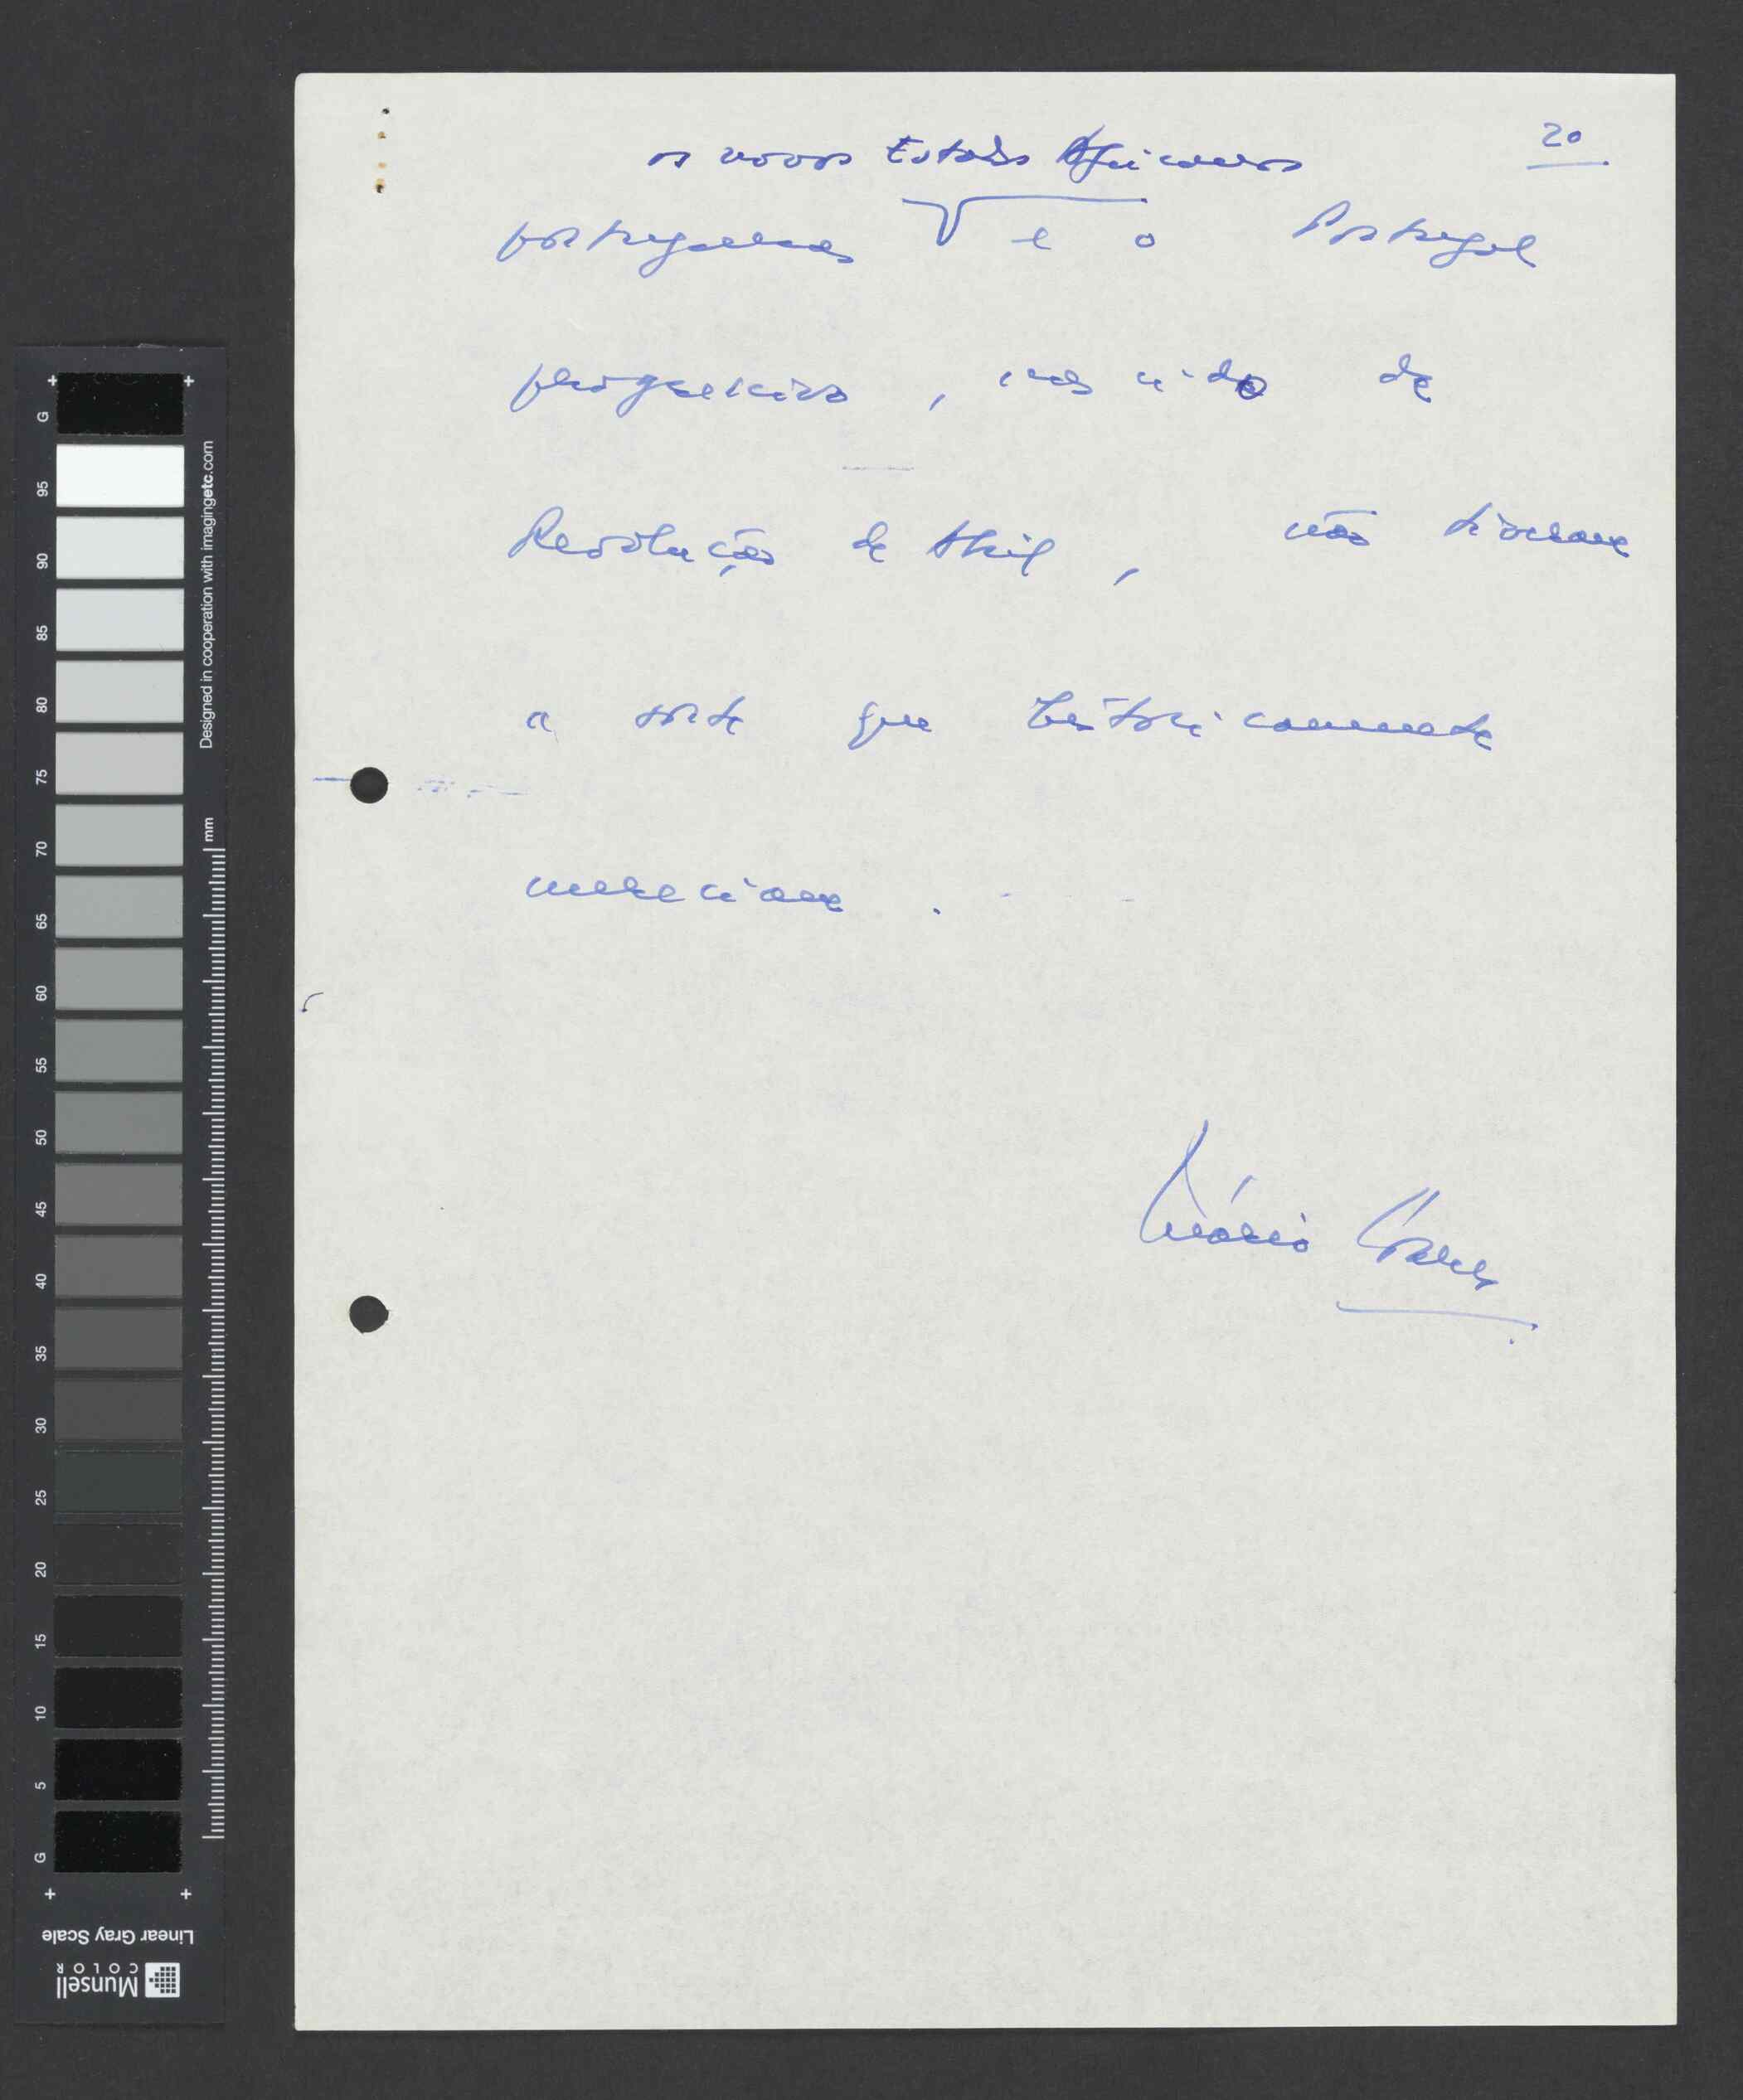 20
os novos Estados Africanos
portugueses e o Portugal
progressivo, nascido da
Revolução de Abril, não tiveram
a sorte que historicamente
mereciam.
Mário Soares
G
95
90
85
80
75
70
65
60
55
50
45
40
35
30
25
20
15
10
5
G
Designed in cooperation with imagingetc.com
mm
Linear Gray Scale
Munsell
COLOR